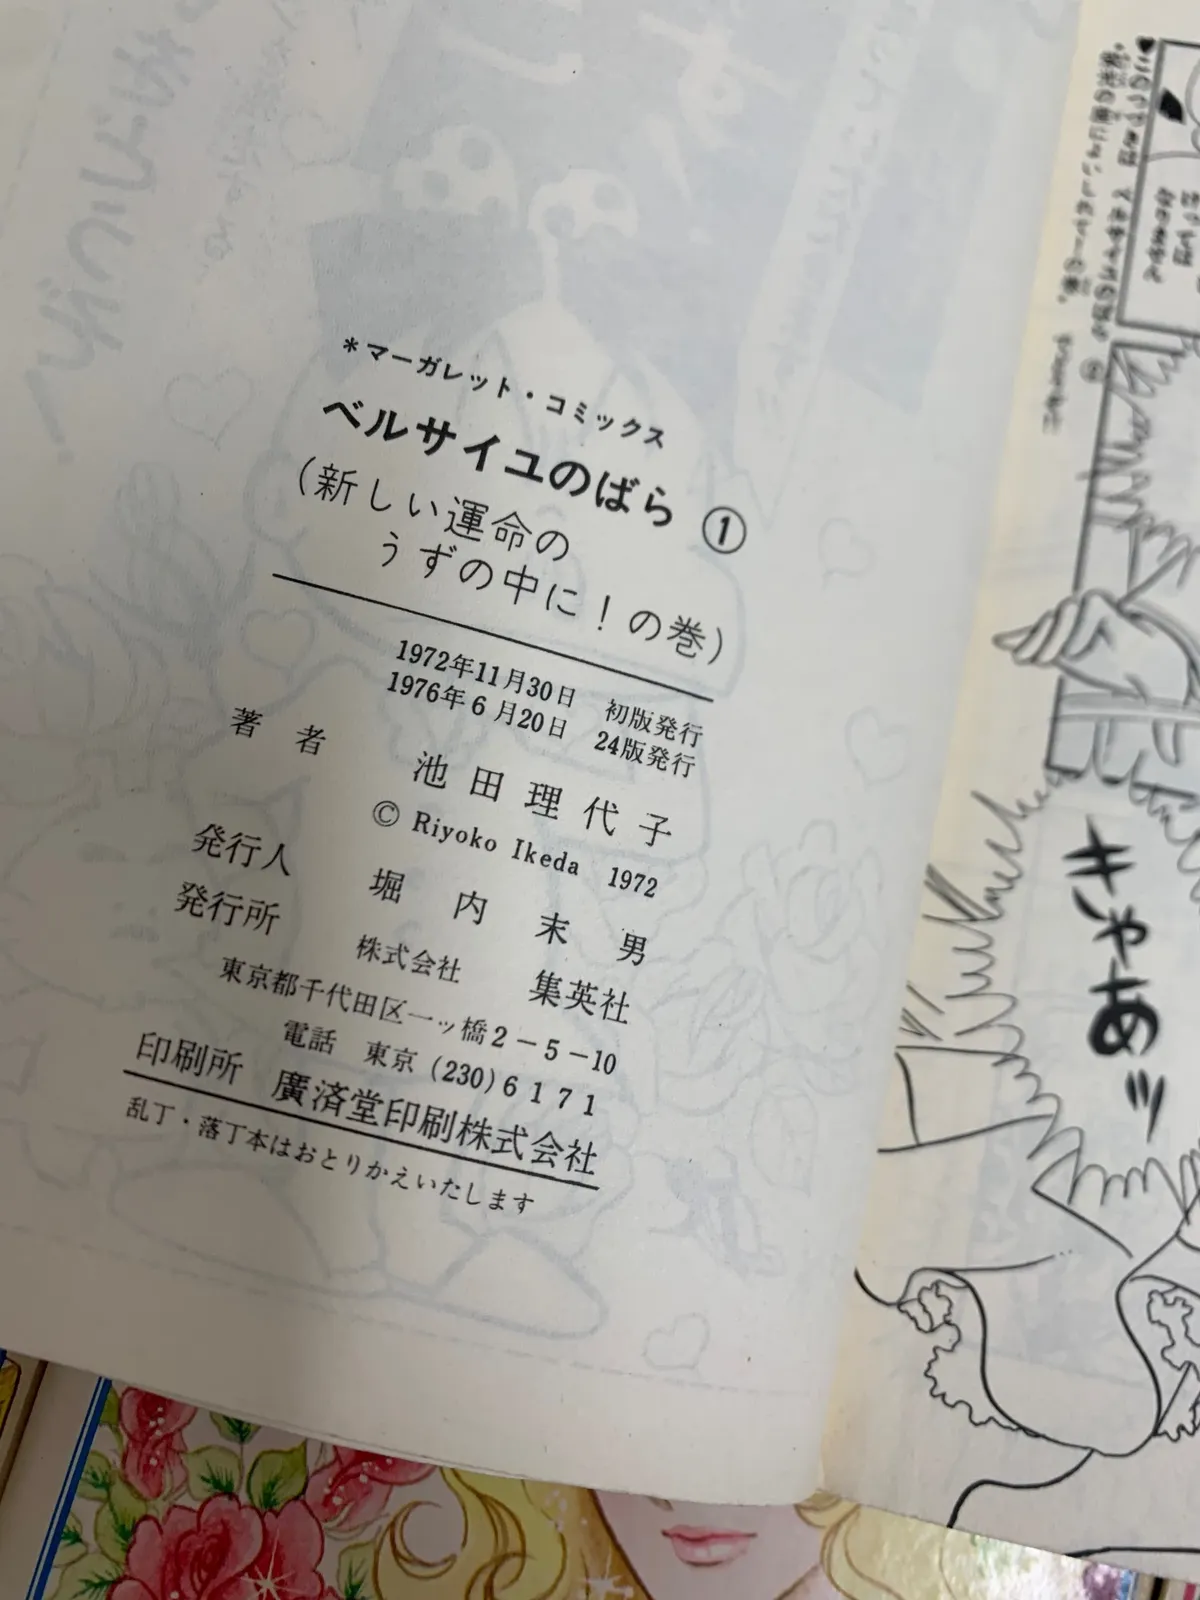 *マーガレット・コミックス
ベルサイユのばら ①
(新しい運命の
うずの中に!の巻)
1972年11月30日 初版発行
1976年6月20日 24版発行
著者 池田理代子
© Riyoko Ikeda 1972
発行人 堀内末男
発行所 株式会社 集英社
東京都千代田区一ッ橋2-5-10
電話 東京(230)6171
印刷所 廣済堂印刷株式会社
乱丁・落丁本はおとりかえいたします
♥このつづきは ベルサイユのばら
なりません
きゃあッ